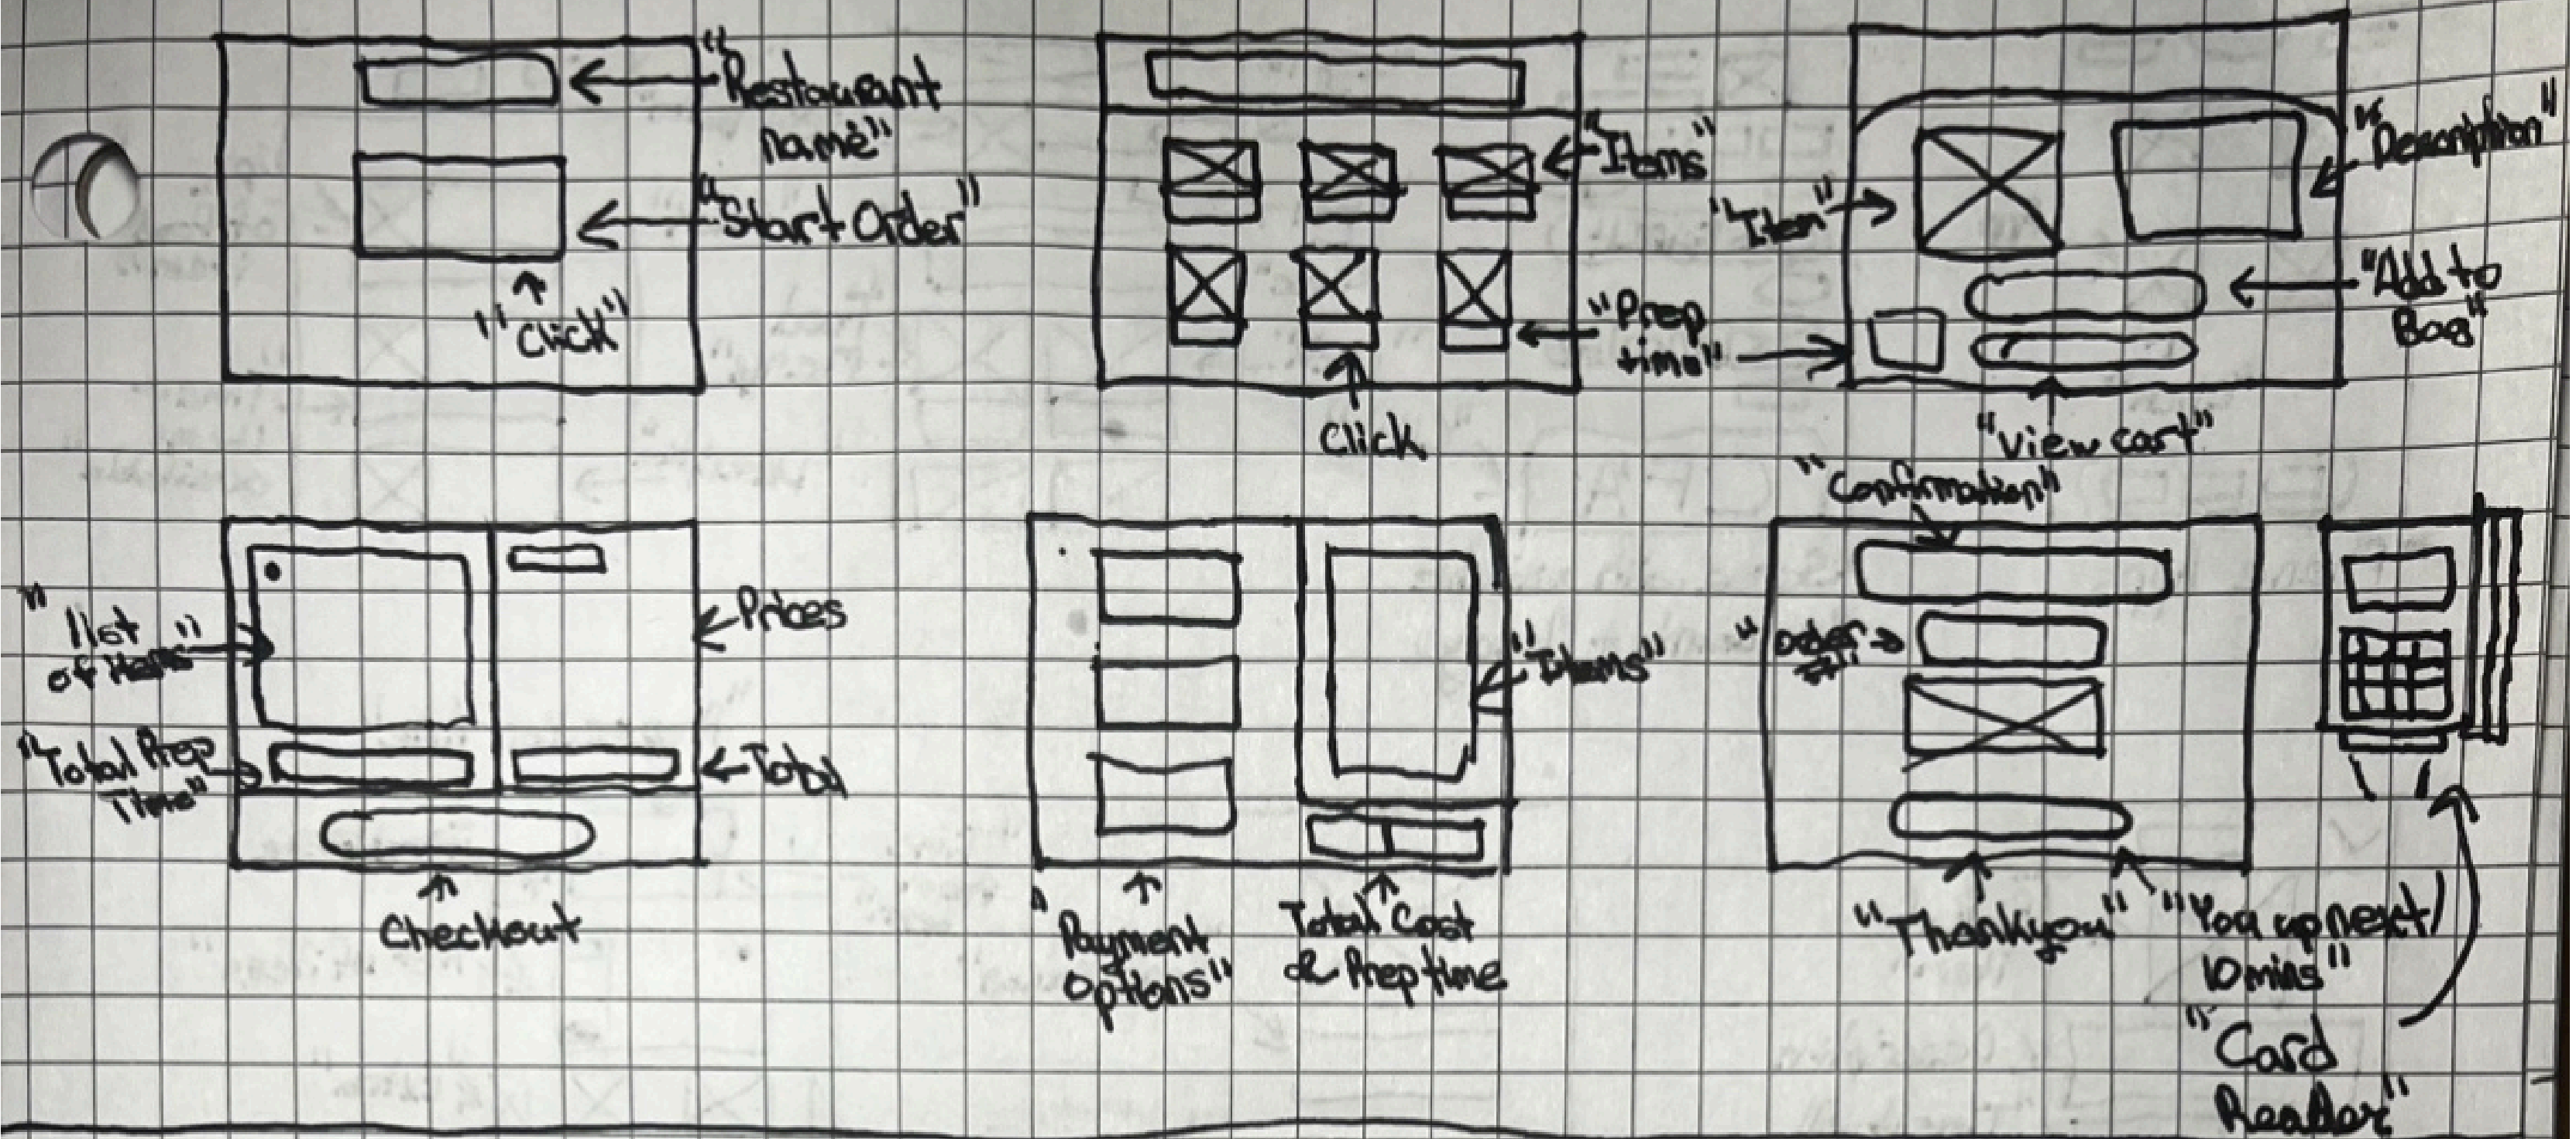 "Restaurant
name"
"Start Order"
"Click"
"Items"
"Prep
time"
Click
"Item"
"Description"
"Add to
Bag"
"View cart"
"list
of items"
"Total Prep
Time"
Prices
Total
Checkout
"Items"
"Payment
options"
Total Cost
& Prep time
"Confirmation"
"order
#"
"Thankyou"
"You up next/
10 mins"
"Card
Reader"